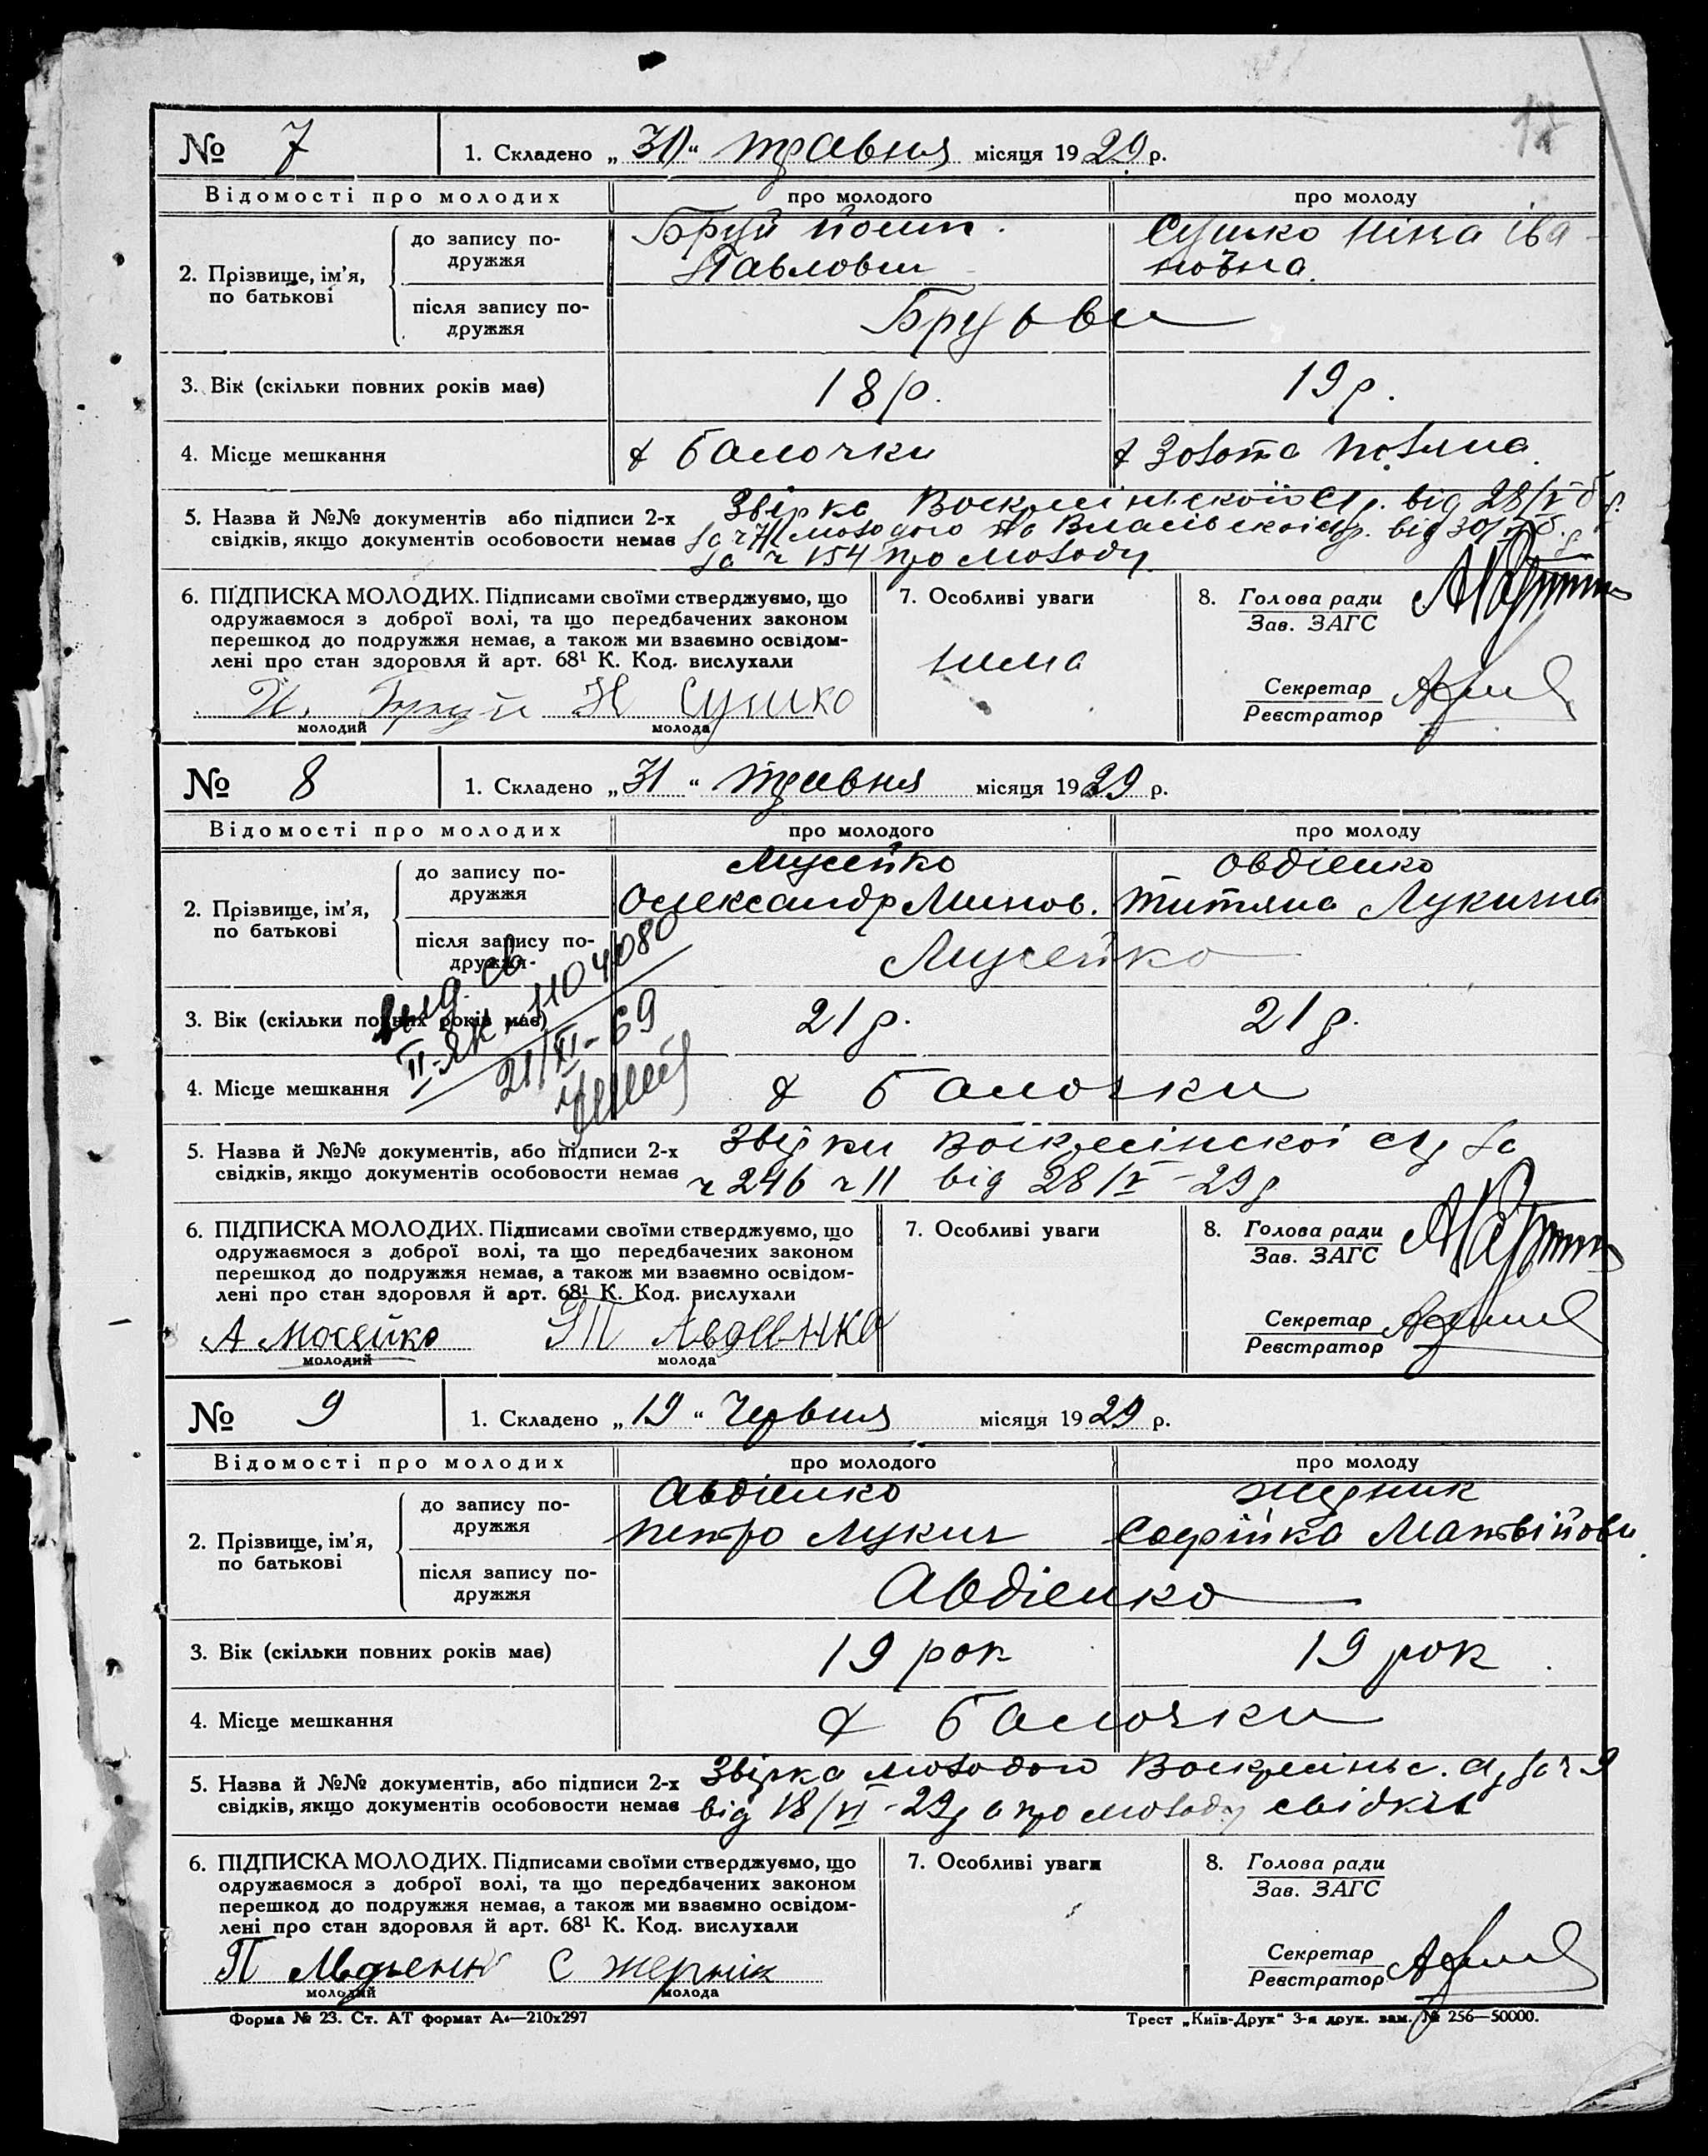 № 7 1. Складено „ 31 “ травня місяця 1929 р.
Відомості про молодих про молодого про молоду
2. Прізвище, ім’я, по батькові
до запису подружжя
Бруй
Павлович
Сушко Ніна Іва
новна.
після запису подружжя
3. Вік (скільки повних років має) 18 р. 19 р.
4. Місце мешкання х Балочки х Золота Поляна.
5. Назва й №№ документів або підписи 2-х
свідків, якщо документів особовости немає
за ч 154 про молоду
6. ПІДПИСКА МОЛОДИХ. Підписами своїми стверджуємо, що
одружаємося з доброї волі, та що передбачених законом
перешкод до подружжя немає, а також ми взаємно освідом-
лені про стан здоровля й арт. 68¹ К. Код. вислухали
Й. Бруй Н Сушко
молодий молода
7. Особливі уваги
нема
8. Голова ради
Зав. ЗАГС
Секретар
Реєстратор
№ 8 1. Складено „ 31 “ травня місяця 1929 р.
Відомості про молодих про молодого про молоду
2. Прізвище, ім’я, по батькові
до запису подружжя
Мусейко
Олександр Минов.
Овдіенко
Титяна Лукична
після запису подружжя
Мусейко
3. Вік (скільки повних років має) 21 р. 21 р.
4. Місце мешкання х Балочки
выд. св
II-ЯК 1104080
21/XI-69
5. Назва й №№ документів, або підписи 2-х
свідків, якщо документів особовости немає
ч 246 ч 11 від 28/V - 29 р
6. ПІДПИСКА МОЛОДИХ. Підписами своїми стверджуємо, що
одружаємося з доброї волі, та що передбачених законом
перешкод до подружжя немає, а також ми взаємно освідом-
лені про стан здоровля й арт. 68¹ К. Код. вислухали
А Мосейко Т Авдеенко
молодий молода
7. Особливі уваги
8. Голова ради
Зав. ЗАГС
Секретар
Реєстратор
№ 9 1. Складено „ 19 “ Червня місяця 1929 р.
Відомості про молодих про молодого про молоду
2. Прізвище, ім’я, по батькові
до запису подружжя
Авдіенко
Петро Лукич
Жерник
Софійка Матвійовн
після запису подружжя
Авдіенко
3. Вік (скільки повних років має) 19 рок 19 рок
4. Місце мешкання х Балочки
5. Назва й №№ документів, або підписи 2-х
свідків, якщо документів особовости немає
від 18/VI - 29 р а про молоду свідки
6. ПІДПИСКА МОЛОДИХ. Підписами своїми стверджуємо, що
одружаємося з доброї волі, та що передбачених законом
перешкод до подружжя немає, а також ми взаємно освідом-
лені про стан здоровля й арт. 68¹ К. Код. вислухали
П С жернік
молодий молода
7. Особливі уваги
8. Голова ради
Зав. ЗАГС
Секретар
Реєстратор
Форма № 23. Ст. АТ формат А₄—210х297
Трест „Київ-Друк“ 3-я друк. зам. № 256—50000.